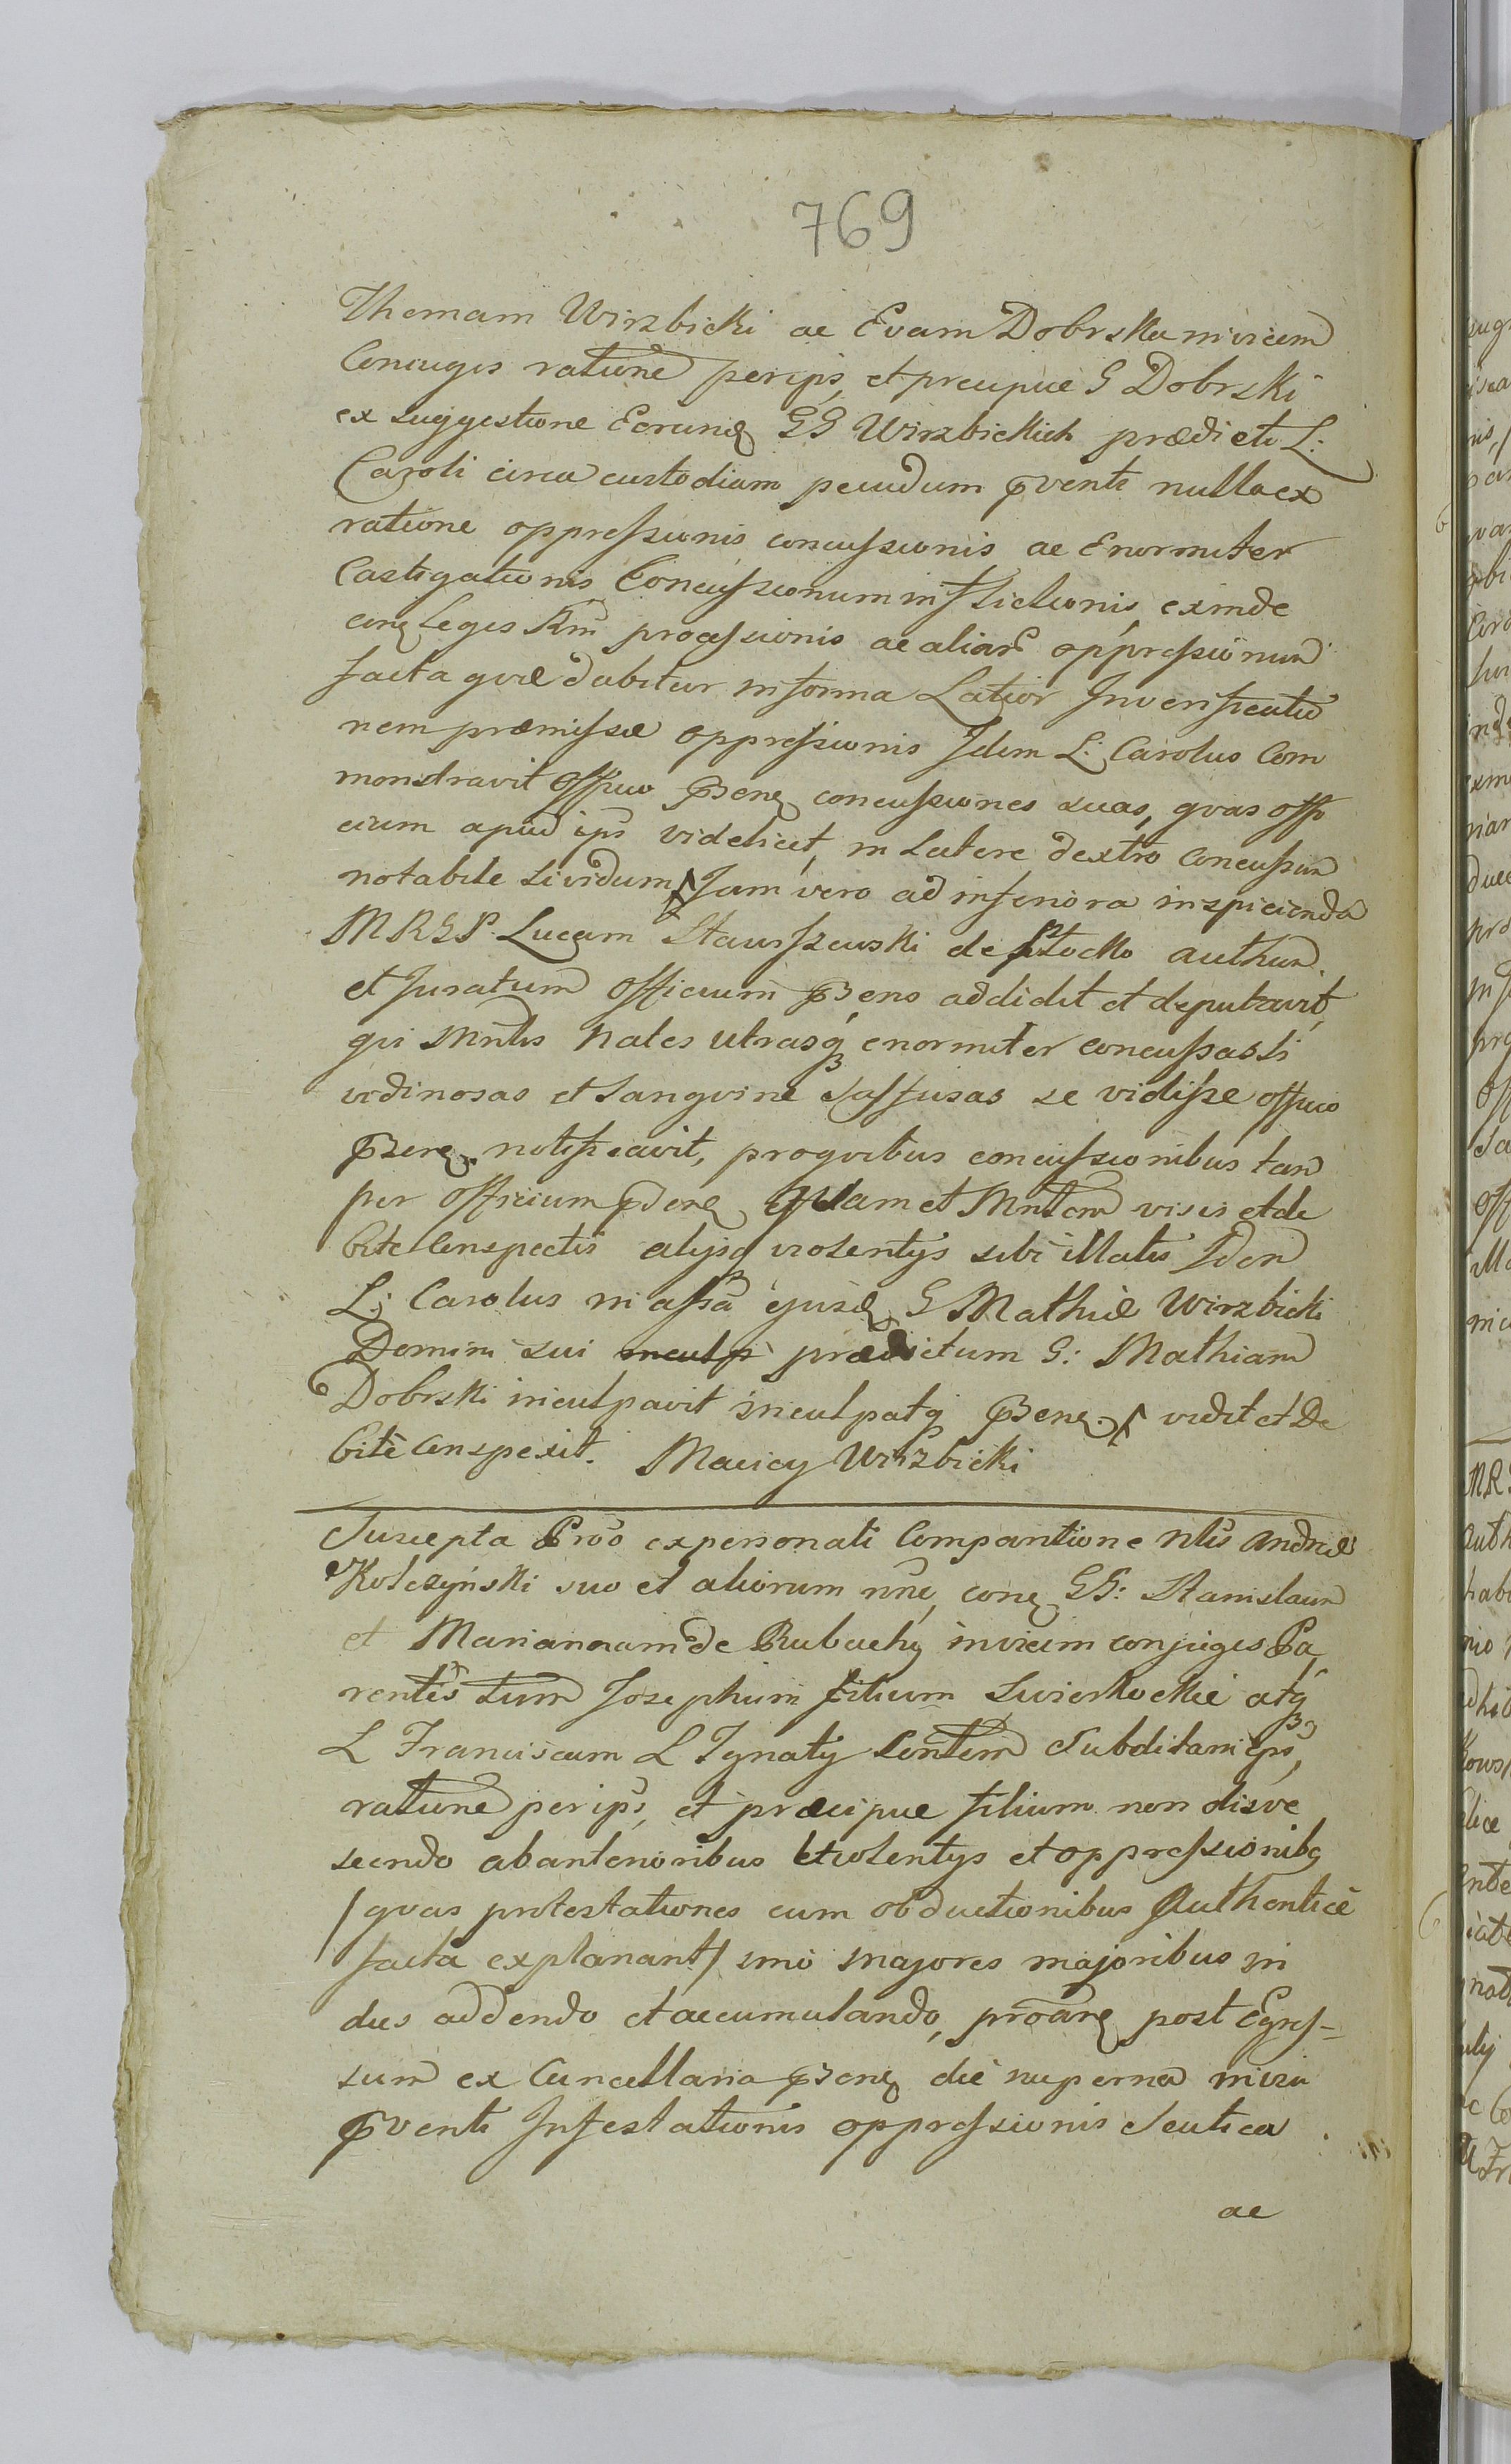 769
Thomam Wirzbicki ac Evam Dobrska invicem
Coniuges ratione per ips, et precipue G Dobrski
ex suggestione Eorund GG Wirzbickich prædicti L:
Caroli circa custodiam pecudum pventi nulla ex
ratione oppressionis concussionis ac Enormiter
Castigationis Concussionum inflictionis, exinde
conq Leges Rni processionis ac aliar oppressionum
facta qvæ dabitur in forma Latior Inverificatio
nem præmissæ oppressionis Idem L: Carolus Com
monstravit Officio psenq concussiones suas, qvas offi
cium apud ips videlicet, in Latere dextro concussum
notabile lividum, Jam vero ad inferiora inspicienda
MRGP. Lucam Staniszewski de Płocko authen
et Juratum Officium psens addidit et deputavit,
qvi Mntis nates utrasq enormiter concussas li
vidinosas et sangvine suffusas se vidisse officio
psenq notificavit, proqvibus concussionibus tam
per Officium psens qvam et Mntem visis et de
bite conspectis alijsq violentijs sibi illatis Idem
L: Carolus in assa ejusd G Mathiæ Wirzbicki
Domini sui inculp prædictum G: Mathiam
Dobrski inculpavit inculpatq psenq vidit et De
bitè conspexit. Maciey Wirzbicki
Suscepta Pvo expersonati Comparitione Nlis Andreæ
Kolczyński suo et aliorum nne, conq GG: Stanislaum
et Mariannam de Rubachy invicem conjuges Pa
rentes tum Josephum filium Swierkockie atq
L Franciscum L Ignaty Centem Subditam ips,
ratione per ips, et præcipue filium non disve
scendo ab anterioribus violentys et oppressionibq
/qvas protestationes cum obductionibus Authenticè
facta explanant/ imò majores majoribus in
dies addendo et accumulando, proarq post Egres-
sum ex Cancellaria psenq die nuperna in via
pventi Infestationis oppressionis Scutica
ac